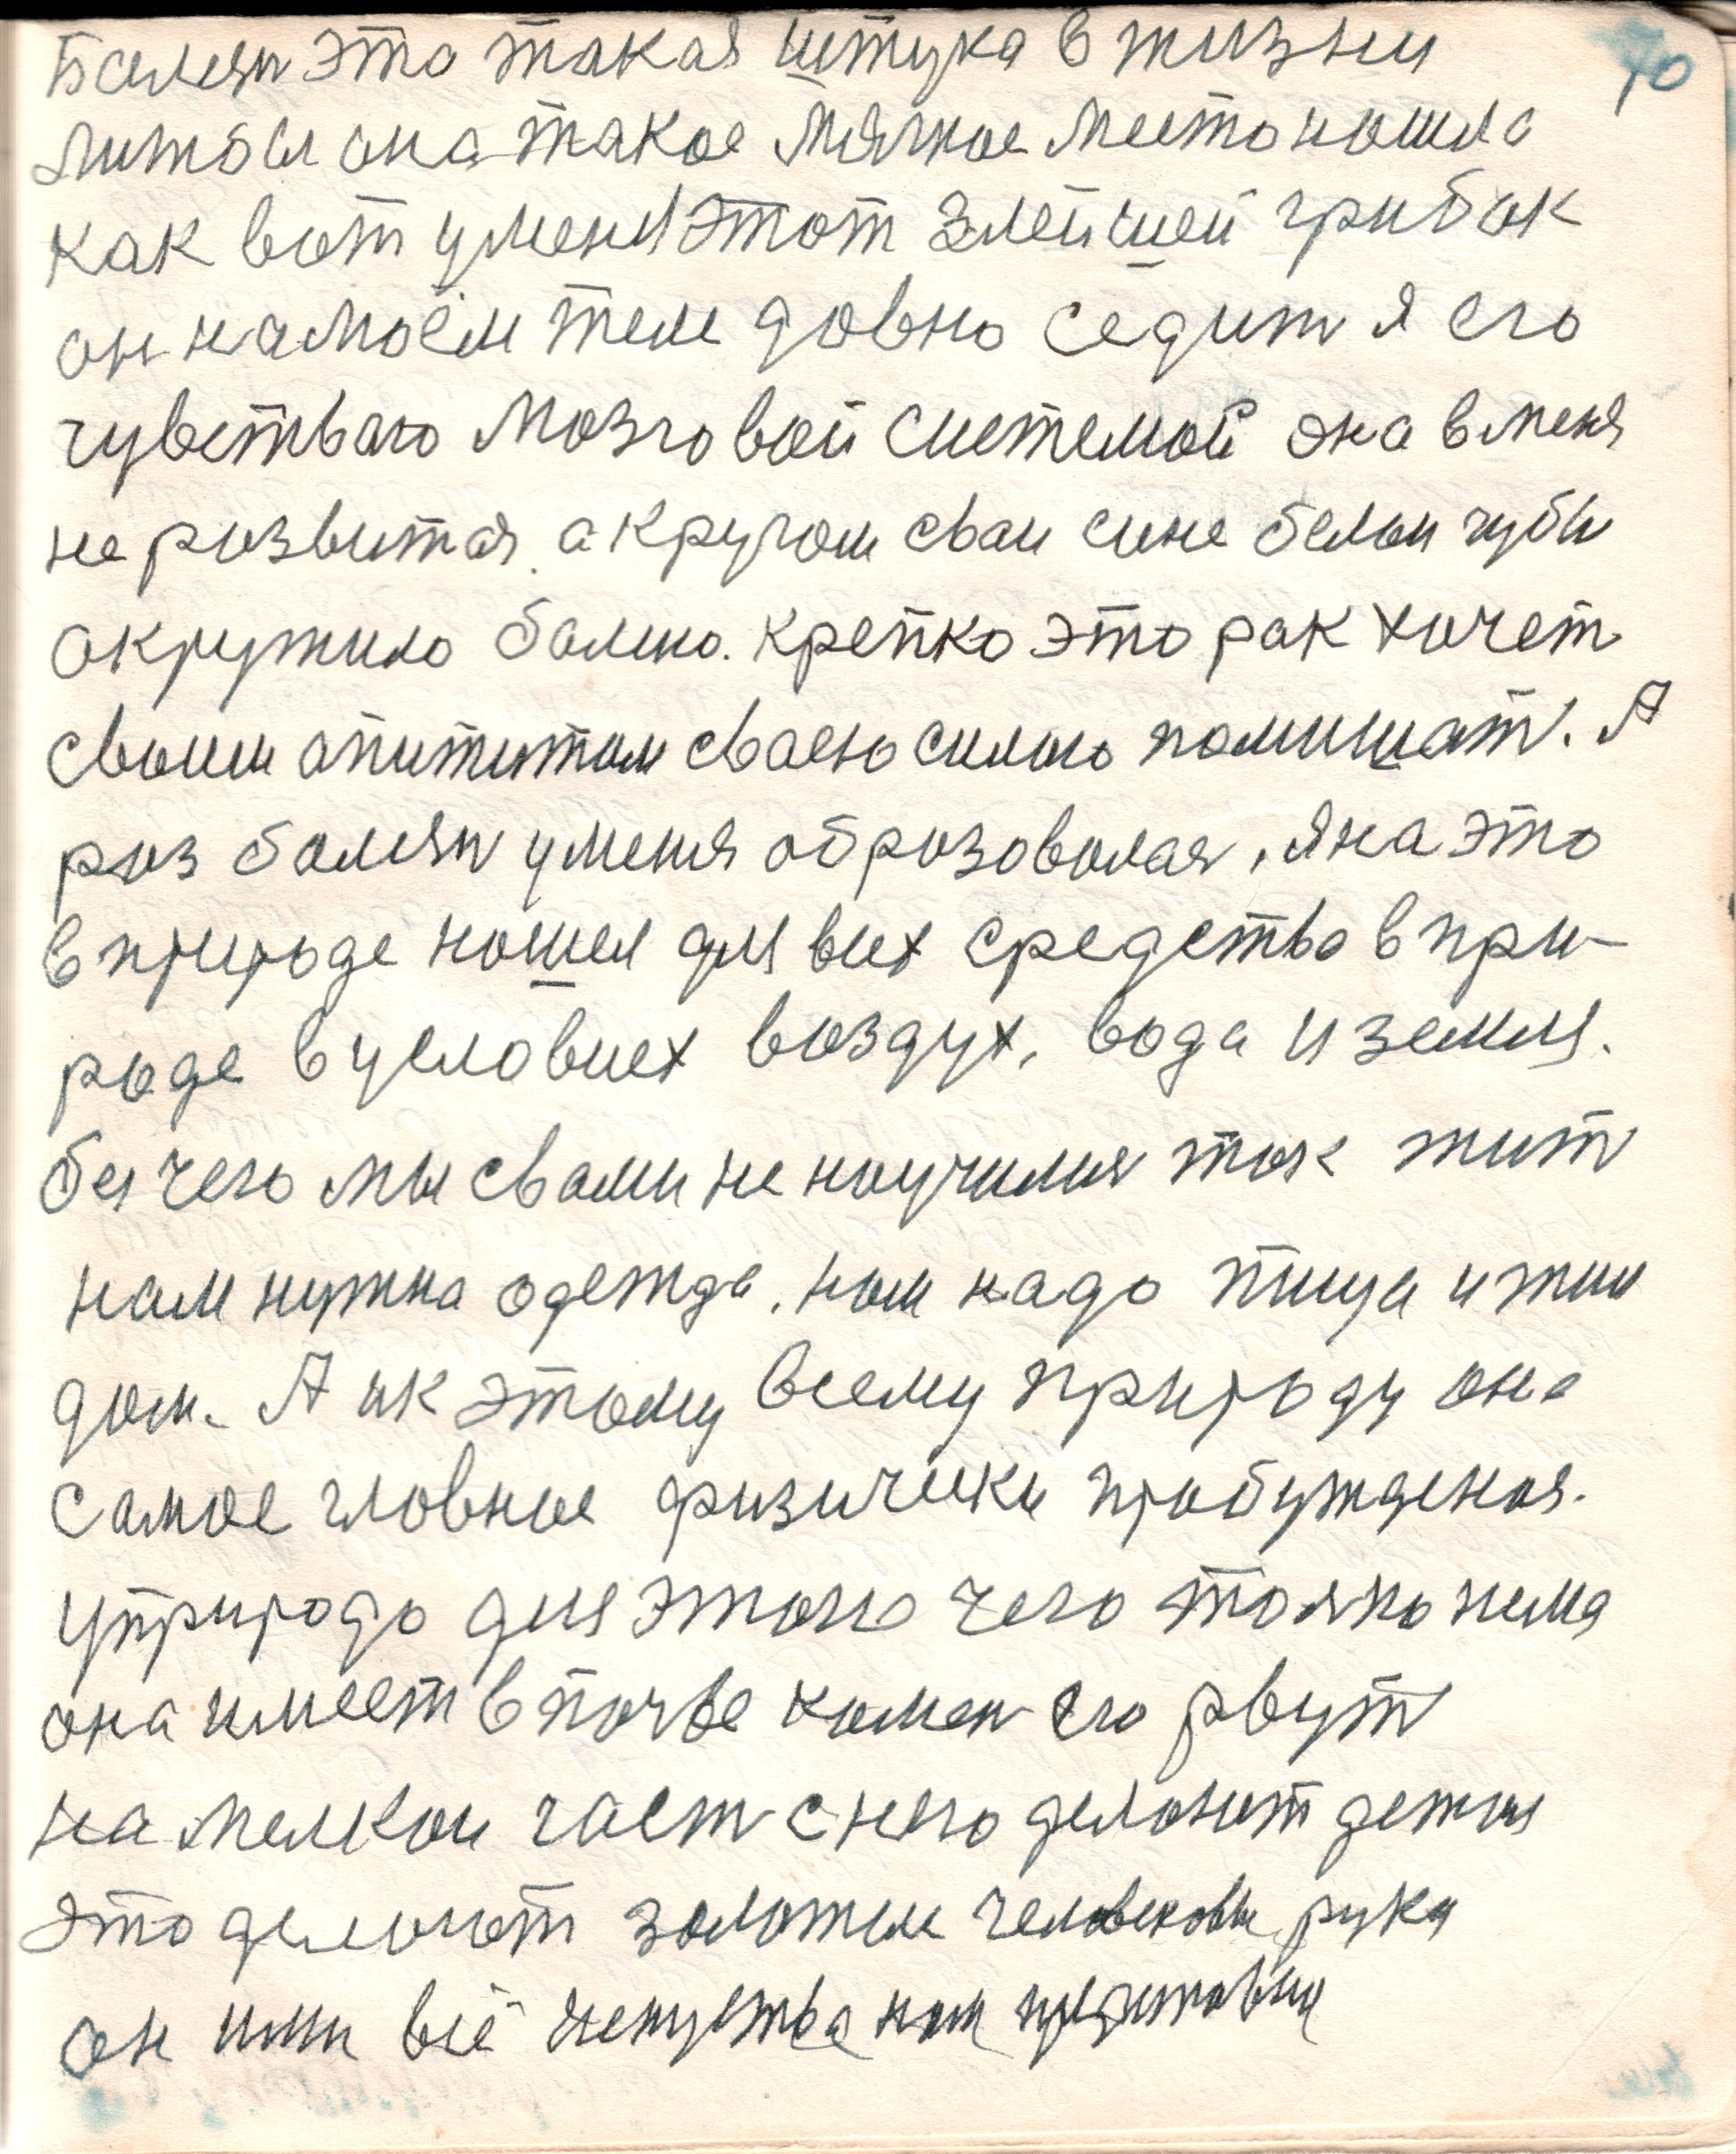 70
Балезн это такая штука в жизни
литобы она такое мягкое место нашла
как вот у меня этот злейшей грибок
он на моём теле довно седит я его
чувствою мозговой системой она в меня
не розвитая. а кругом сваи сине белыи губы
окружило болшо. Крепко это рак хочет
своим апититом сваею силою помишат. А
роз болезн у меня оброзовалас, я на это
в природе нашел для всех средство в при-
роде в условиех воздух, вода и земля.
без чего мы с вами не научилис так жит
нам нужна одежда. нам надо пища и жил
дом. А ик этому всему природу она
самое гловное физически пробуждения.
у природо для этого чего толко нема
она имеет в почве камен его рвут
на мелкои част с него делоют детал
это делоют золотые человековы руки
он ими всё искуства нам